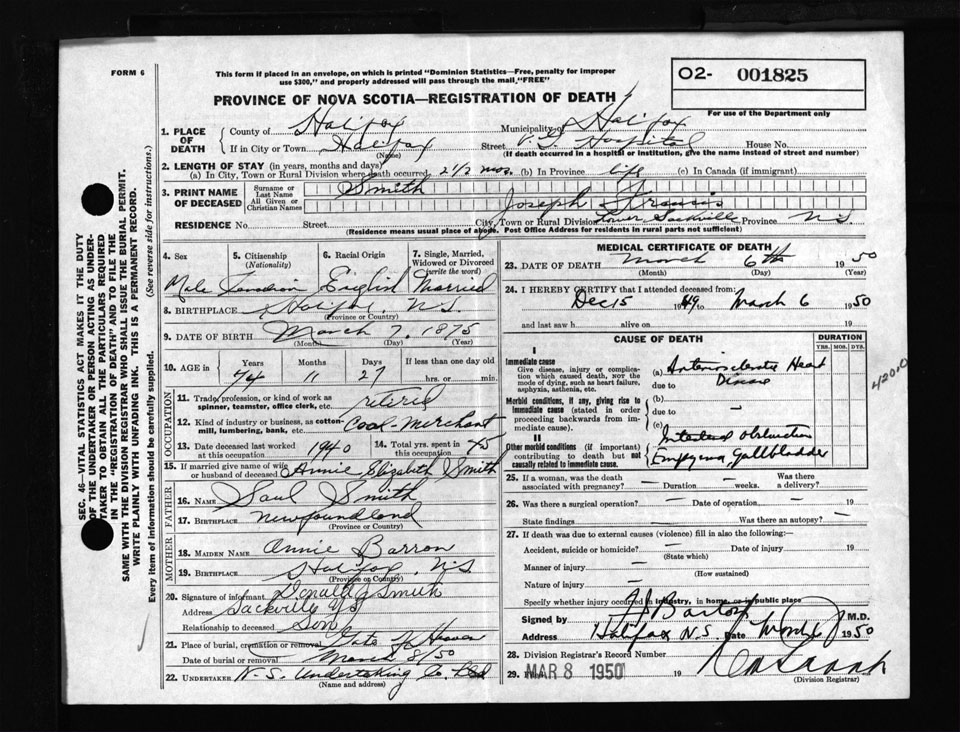 FORM 6
This form if placed in an envelope, on which is printed "Dominion Statistics—Free, penalty for improper
use $300," and properly addressed will pass through the mail, "FREE"
O2- 001825
For use of the Department only
PROVINCE OF NOVA SCOTIA—REGISTRATION OF DEATH
1. PLACE OF DEATH County of Halifax Municipality of Halifax
If in City or Town Halifax (Name) Street V.G. Hospital House No.
(If death occurred in a hospital or institution, give the name instead of street and number)
2. LENGTH OF STAY (in years, months and days)
(a) In City, Town or Rural Division where death occurred 2 1/2 mos. (b) In Province life (c) In Canada (if immigrant)
3. PRINT NAME OF DECEASED Surname or Last Name Smith
All Given or Christian Names Joseph Francis
RESIDENCE No. Street City, Town or Rural Division Lower Sackville Province N.S.
(Residence means usual place of abode. Post Office Address for residents in rural parts not sufficient)
4. Sex 5. Citizenship (Nationality) 6. Racial Origin 7. Single, Married, Widowed or Divorced (write the word)
Male Canadian English Married
8. BIRTHPLACE Halifax, N.S.
(Province or Country)
9. DATE OF BIRTH March 7, 1875
(Month) (Day) (Year)
10. AGE in Years Months Days If less than one day old
74 11 27 hrs. or min.
OCCUPATION
11. Trade, profession, or kind of work as spinner, teamster, office clerk, etc. retired
12. Kind of industry or business, as cotton-mill, lumbering, bank, etc. Coal-Merchant
13. Date deceased last worked at this occupation 1940 14. Total yrs. spent in this occupation 45
15. If married give name of wife or husband of deceased Annie Elizabeth Smith
FATHER
16. NAME Saul Smith
17. BIRTHPLACE Newfoundland
(Province or Country)
MOTHER
18. MAIDEN NAME Annie Barron
19. BIRTHPLACE Halifax, N.S.
(Province or Country)
20. Signature of informant Donald J Smith
Address Sackville N S
Relationship to deceased Son
21. Place of burial, cremation or removal Gate of Heaven
Date of burial or removal March 8/50
22. UNDERTAKER N.S. Undertaking Co. Ltd
(Name and address)
MEDICAL CERTIFICATE OF DEATH
23. DATE OF DEATH March 6th 1950
(Month) (Day) (Year)
24. I HEREBY CERTIFY that I attended deceased from:
Dec 15 1949 to March 6 1950
and last saw h alive on 19
CAUSE OF DEATH DURATION
YRS. MOS. DYS.
I
Immediate cause
Give disease, injury or complication which caused death, NOT the mode of dying, such as heart failure, asphyxia, asthenia, etc.
(a) Arteriosclerotic Heart
due to Disease
42000
Morbid conditions, if any, giving rise to immediate cause (stated in order proceeding backwards from immediate cause).
(b) —
due to —
(c) Intestinal Obstruction
II
Other morbid conditions (if important) contributing to death but not causally related to immediate cause.
Empyema, Gallbladder
25. If a woman, was the death associated with pregnancy? — Duration — weeks. Was there a delivery? —
26. Was there a surgical operation? — Date of operation — 19
State findings — Was there an autopsy? —
27. If death was due to external causes (violence) fill in also the following:—
Accident, suicide or homicide? — Date of injury 19
(State which)
Manner of injury —
(How sustained)
Nature of injury —
Specify whether injury occurred in industry, in home, or in public place
Signed by M.D.
Address Halifax N.S. Date March 6 1950
28. Division Registrar's Record Number
29. Filed MAR 8 1950 19
(Division Registrar)
SEC. 46—VITAL STATISTICS ACT MAKES IT THE DUTY
OF THE UNDERTAKER OR PERSON ACTING AS UNDER-
TAKER TO OBTAIN ALL THE PARTICULARS REQUIRED
IN THE "REGISTRATION OF DEATH" AND TO FILE THE
SAME WITH THE DIVISION REGISTRAR WHO SHALL ISSUE THE BURIAL PERMIT.
WRITE PLAINLY WITH UNFADING INK. THIS IS A PERMANENT RECORD.
Every item of information should be carefully supplied. (See reverse side for instructions.)